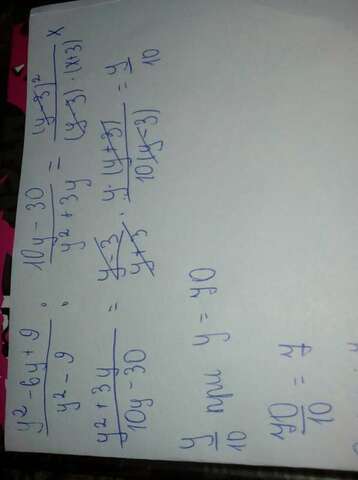 y² - 6y + 9 / y² - 9 : 10y - 30 / y² + 3y = (y-3)² / (y-3) · (x+3) ×
y² + 3y / 10y - 30 = y-3 / y+3 · y · (y+3) / 10(y-3) = y / 10
y / 10 при y = 70
70 / 10 = 7